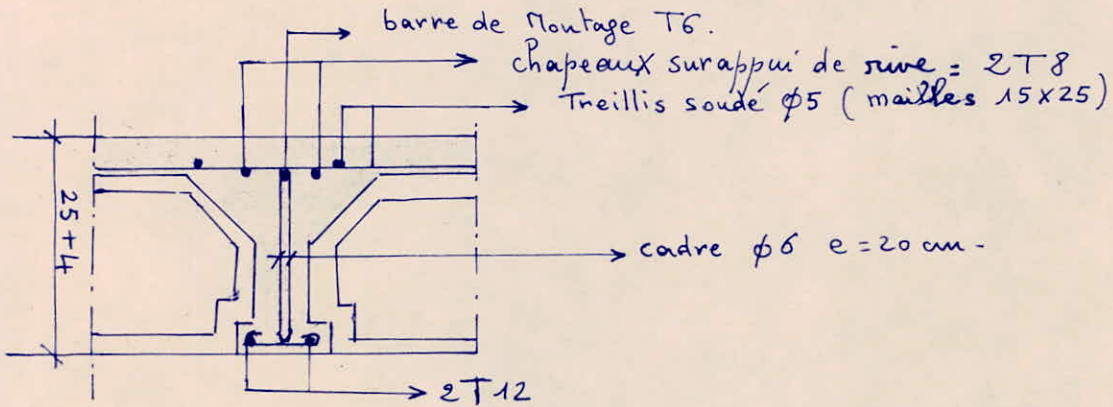 barre de Montage T6.
chapeaux sur appui de rive = 2T8
Treillis soudé φ5 ( mailles 15x25)
25+4
cadre φ6 e = 20 cm -
2T12